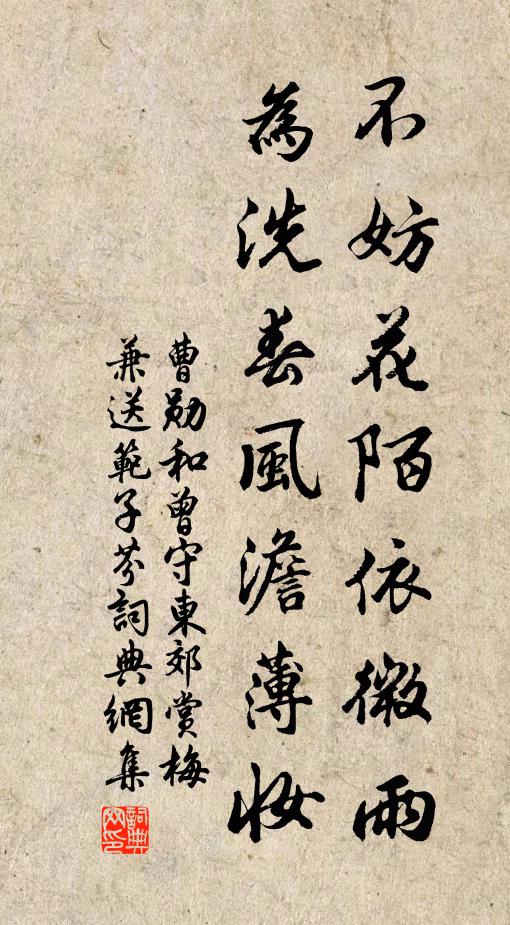 不妨花陌依微雨
為洗春風澹薄妝
曹勛和曾守東郊賞梅
兼送範子芬詞典網集
詞典
网印